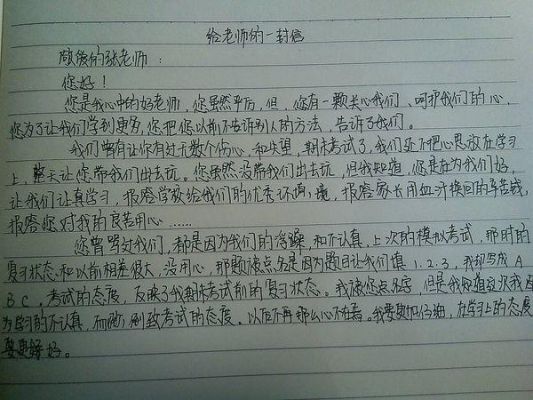 给老师的一封信
敬爱的张老师：
您好！
您是我心中的好老师，您虽然平凡，但，您有一颗关心我们，呵护我们的心，
您为了让我们学到更多，您把您以前不告诉别人的方法，告诉了我们。
我们曾有让你有过无数个伤心，和失望，期末考试了，我们还不把心思放在学习
上，整天让您带我们出去玩。您虽然没带我们出去玩，但我知道，您是在为我们好，
让我们认真学习，报答学校给我们的优秀环境，报答家长用血汗换回的辛苦钱，
报答您对我的良苦用心……
您曾骂过我们，都是因为我们的和不认真，上次的模拟考试，那时的
复习状态和以前相差很大，没用心，那题被点名是因为题目让我们填1.2.3，我却写成A
B C，考试的态度，反映了我期末考试前的复习状态。我被您点名字，但是我知道这次我因
为学习的不认真，而导致考试的态度，以后不再那么心不在焉。我要更加仔细，在学习上的态度
要更好。